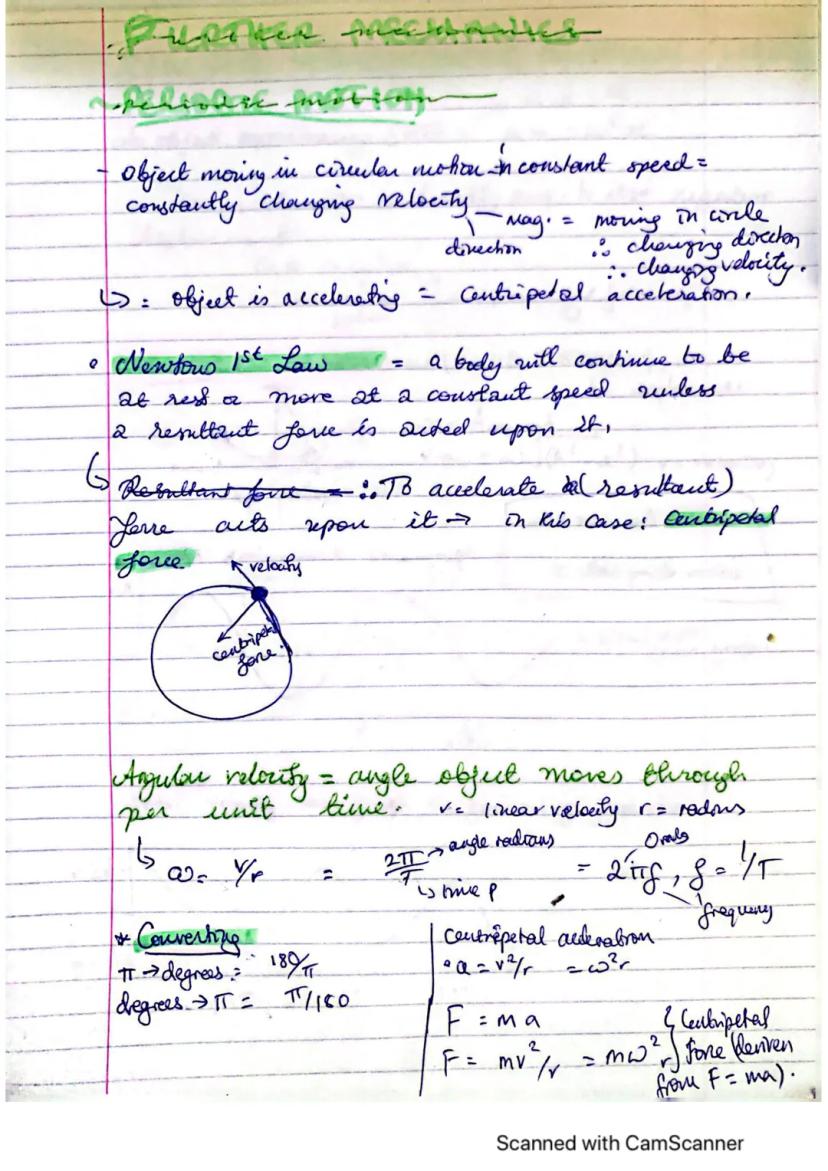 FURTHER MECHANICS
PERIODIC MOTION
- Object moving in circular motion in constant speed =
constantly changing velocity
mag. = moving in circle
direction
∴ changing direction
∴ changing velocity.
↳ = object is accelerating = centripetal acceleration.
• Newtons 1st Law = a body will continue to be
at rest or move at a constant speed unless
a resultant force is acted upon it.
↳ Resultant force = ∴ To accelerate (resultant)
force acts upon it → in this case: centripetal
force
velocity
centripetal
force
Angular velocity = angle object moves through
per unit time. v = linear velocity r = radius
↳ ω = v/r = 2π/T = 2πf, f = 1/T
angle radians
time p
frequency
* Converting
π → degrees = 180/π
degrees → π = π/180
centripetal acceleration
• a = v²/r = ω²r
F = ma
F = mv²/r = mω²r
} Centripetal
force (deriven
from F = ma).
Scanned with CamScanner